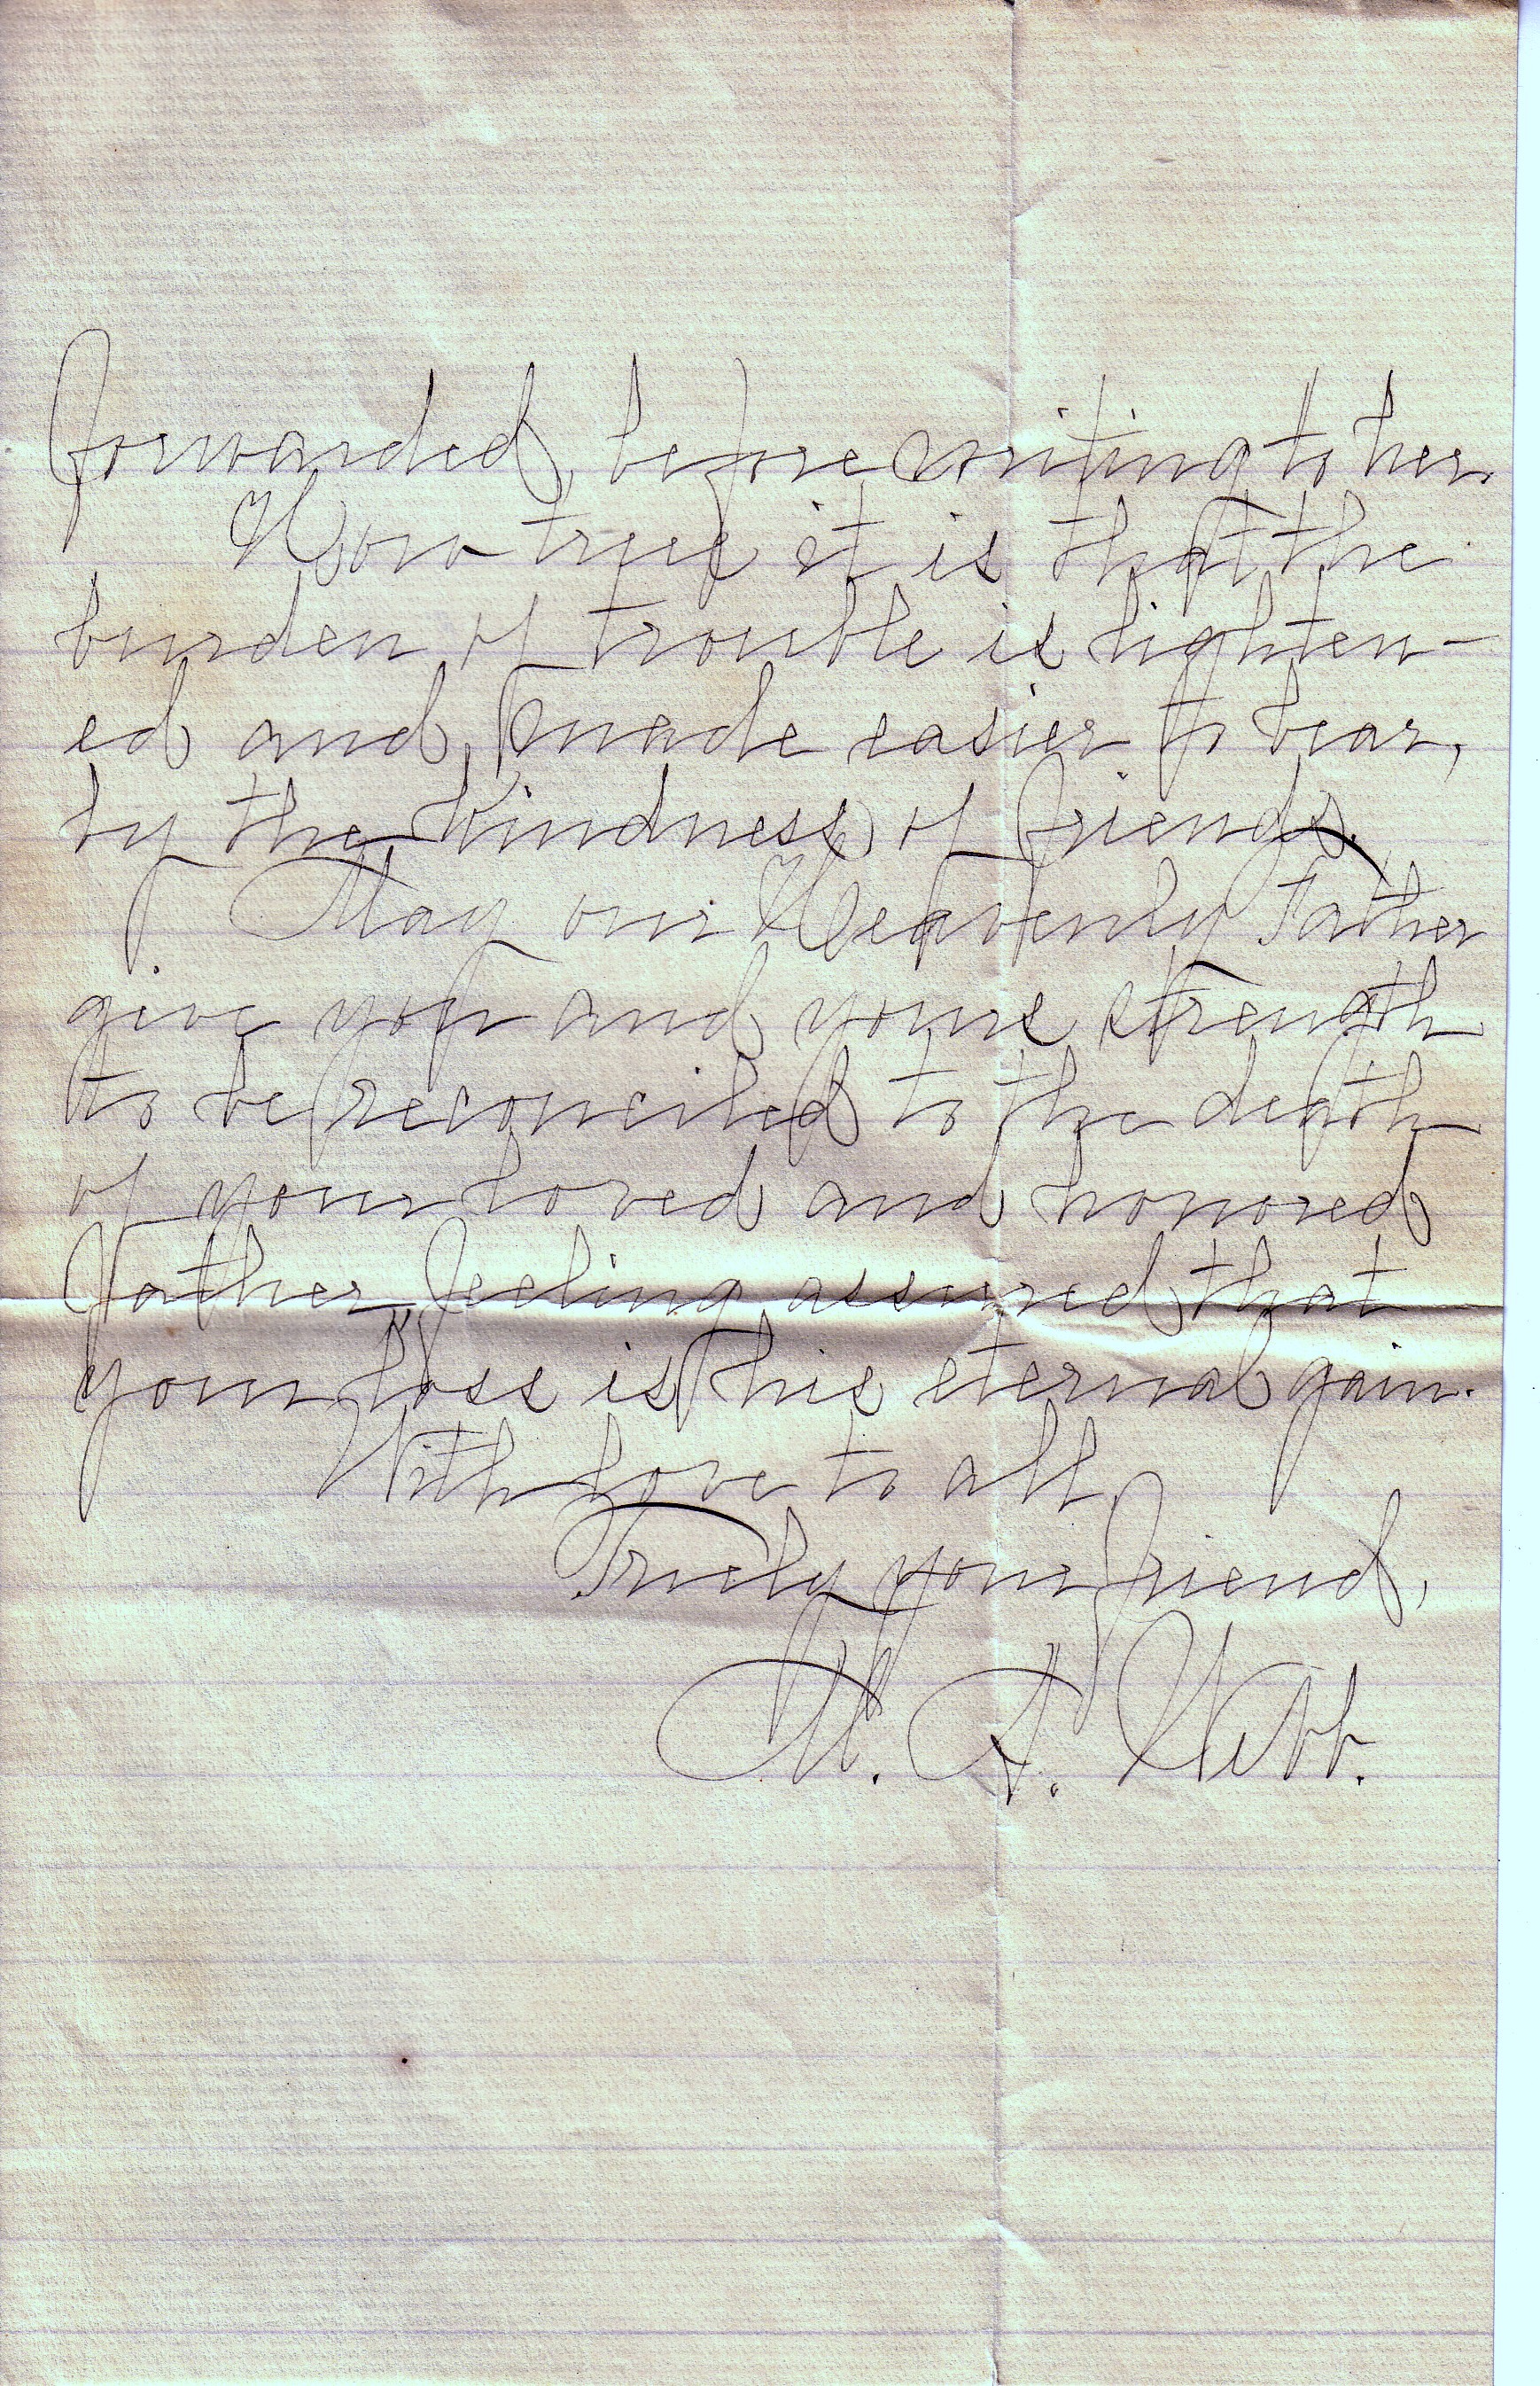 forwarded, before writing to her.
How true it is that the
burden of trouble is lighten-
ed and made easier to bear,
by the kindness of friends.
May our Heavenly Father
give you and yours strength
to be reconciled to the death
of your loved and honored
Father, feeling assured that
your loss is his eternal gain.
With love to all,
Truely your friend,
M. A. Webb.